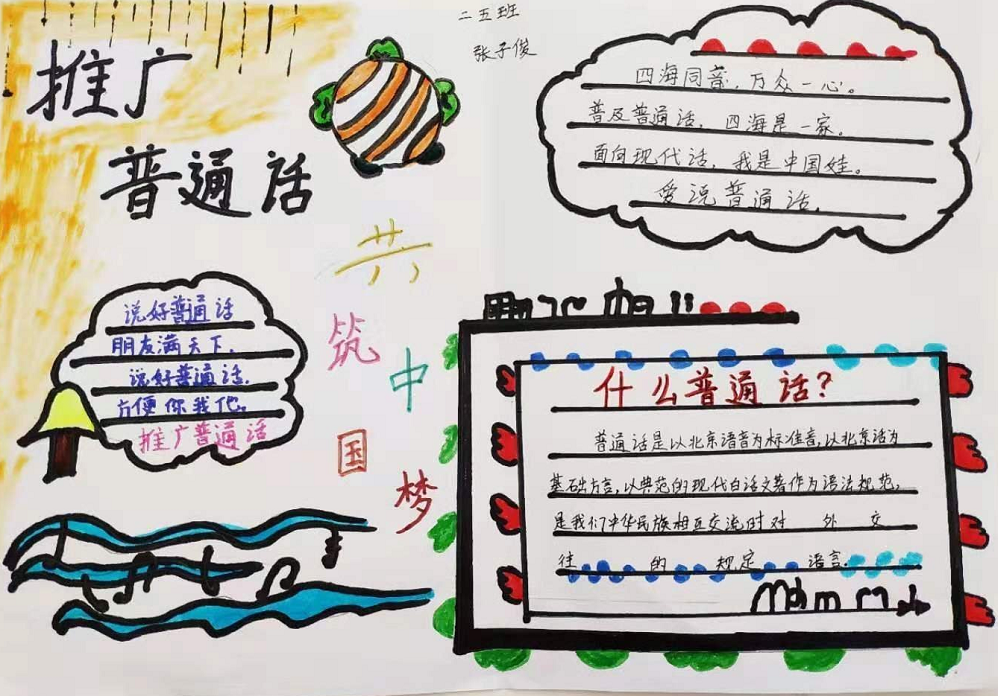 二五班
张子俊
推广
普通话
共
筑
中
国
梦
四海同音，万众一心。
普及普通话，四海是一家。
面向现代话，我是中国娃。
爱说普通话。
说好普通话
朋友满天下，
说好普通话，
方便你我他。
推广普通话
什么普通话？
普通话是以北京语音为标准音，以北京话为
基础方言，以典范的现代白话文著作为语法规范，
是我们中华民族相互交流时对外交
往的规定语言。